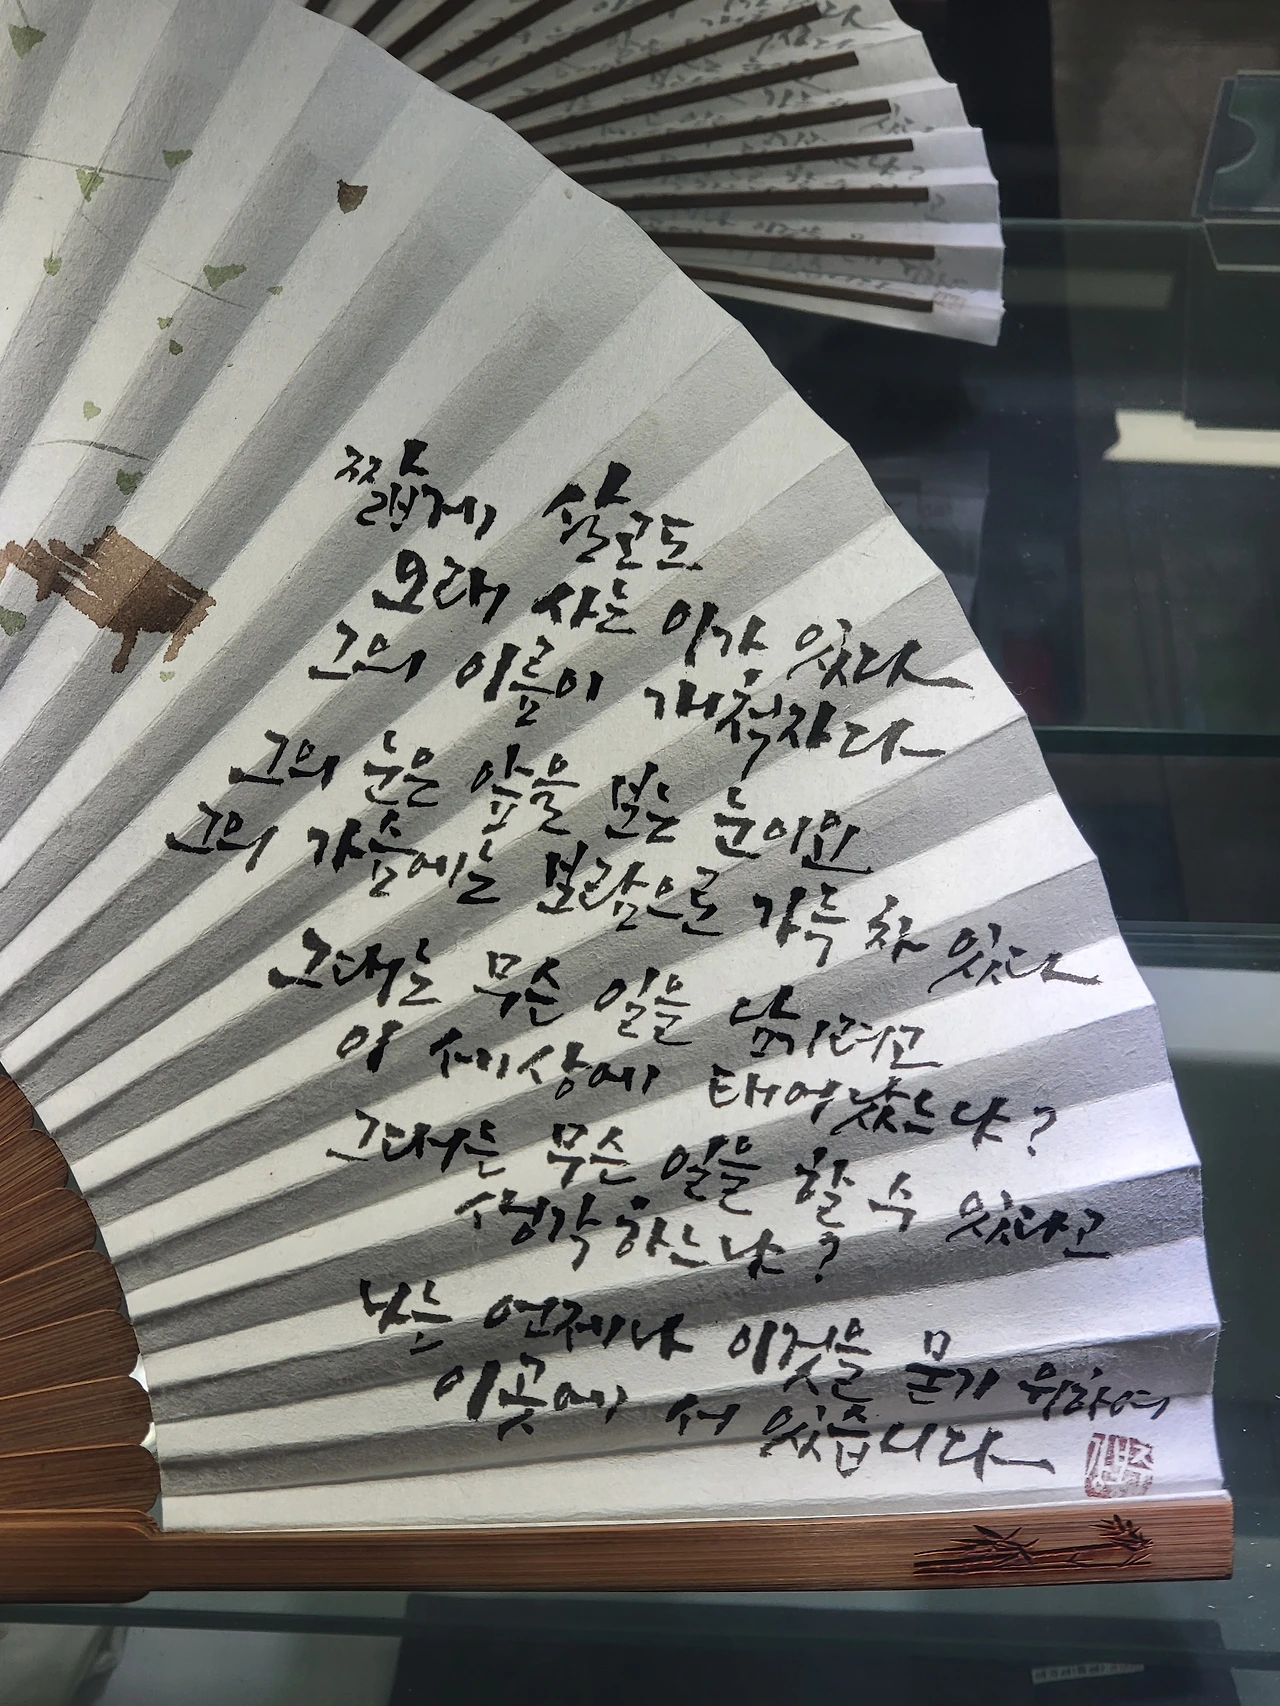 짧게 살고도
오래 사는 이가 있다
그의 이름이 개척자다
그의 눈은 앞을 보는 눈이요
그의 가슴에는 보람으로 가득 차 있다
그대는 무슨 일을 남기려고
이 세상에 태어났느냐?
그대는 무슨 일을 할 수 있다고
생각하느냐?
나는 언제나 이것을 묻기 위하여
이곳에 서 있습니다